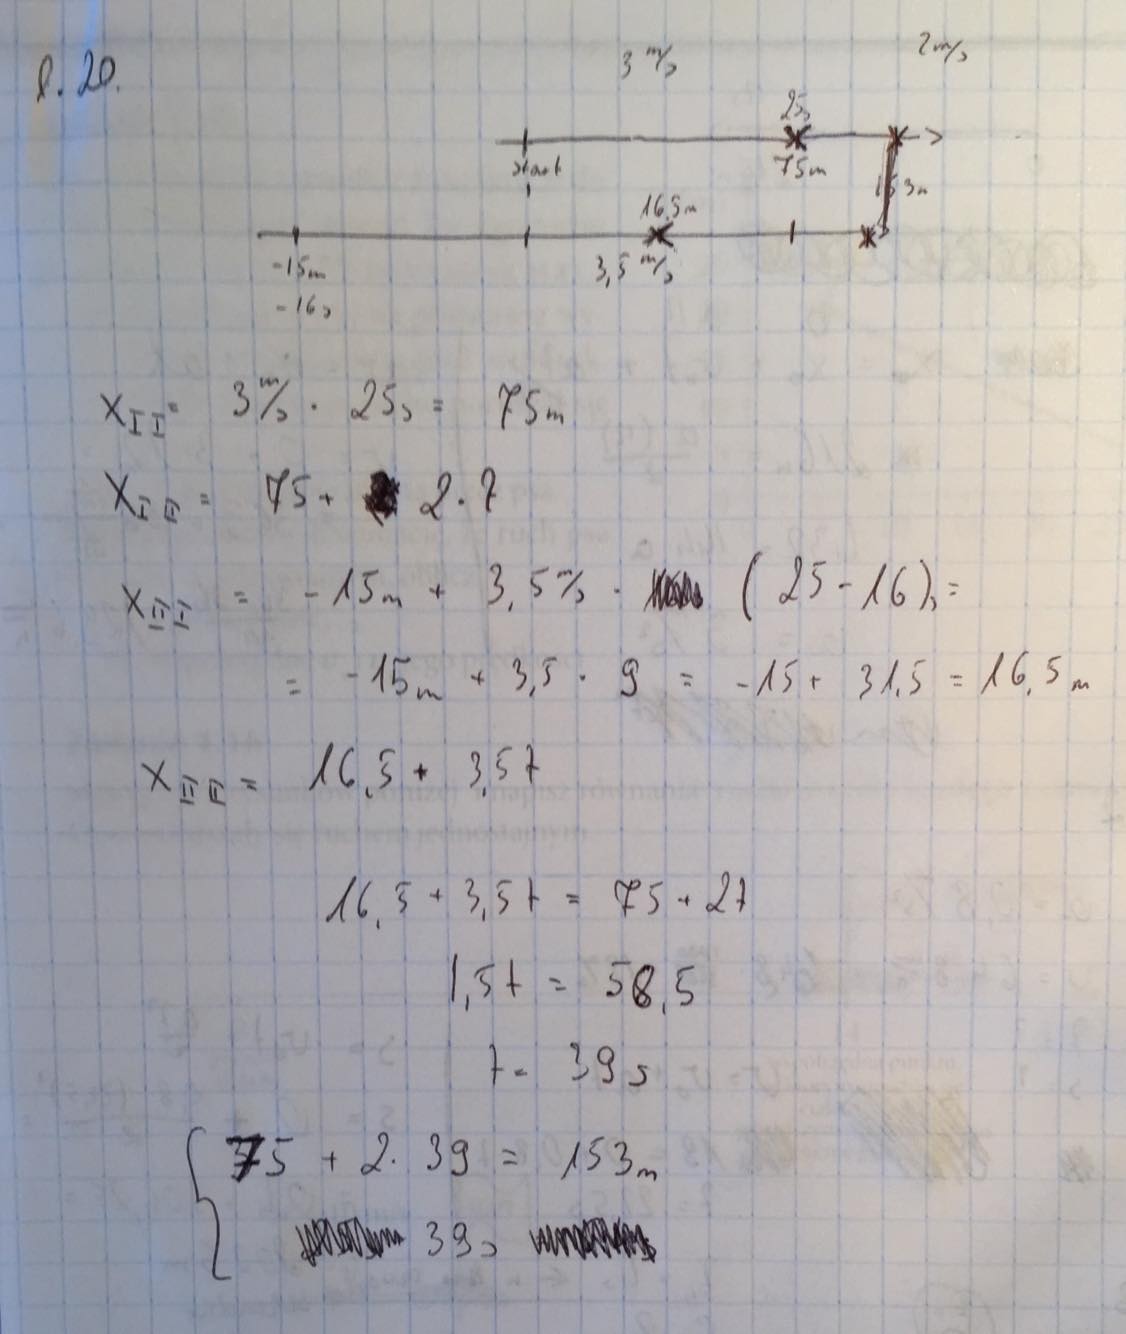 8.20.
3 m/s 2 m/s
25s
start 75m 153m
16,5m
-15m 3,5 m/s
-16s
X_I I = 3 m/s · 25s = 75m
X_I II = 75 + 2·t
X_II I = -15m + 3,5 m/s · (25-16)s =
= -15m + 3,5 · 9 = -15 + 31,5 = 16,5m
X_II II = 16,5 + 3,5t
16,5 + 3,5t = 75 + 2t
1,5t = 58,5
t = 39s
75 + 2·39 = 153m
39s